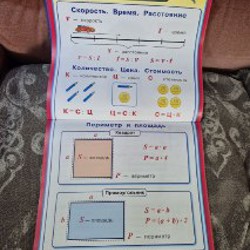 Скорость. Время. Расстояние
V — скорость
t — время
S — расстояние
v = s : t t = s : v s = v · t
Количество. Цена. Стоимость
К — количество Ц — цена С — стоимость
К = С : Ц Ц = С : К С = Ц · К
Периметр и площадь
Квадрат
a
S — площадь
a
S = a · a
P = a · 4
P — периметр
Прямоугольник
a
b
S — площадь
S = a · b
P = (a + b) · 2
P — периметр